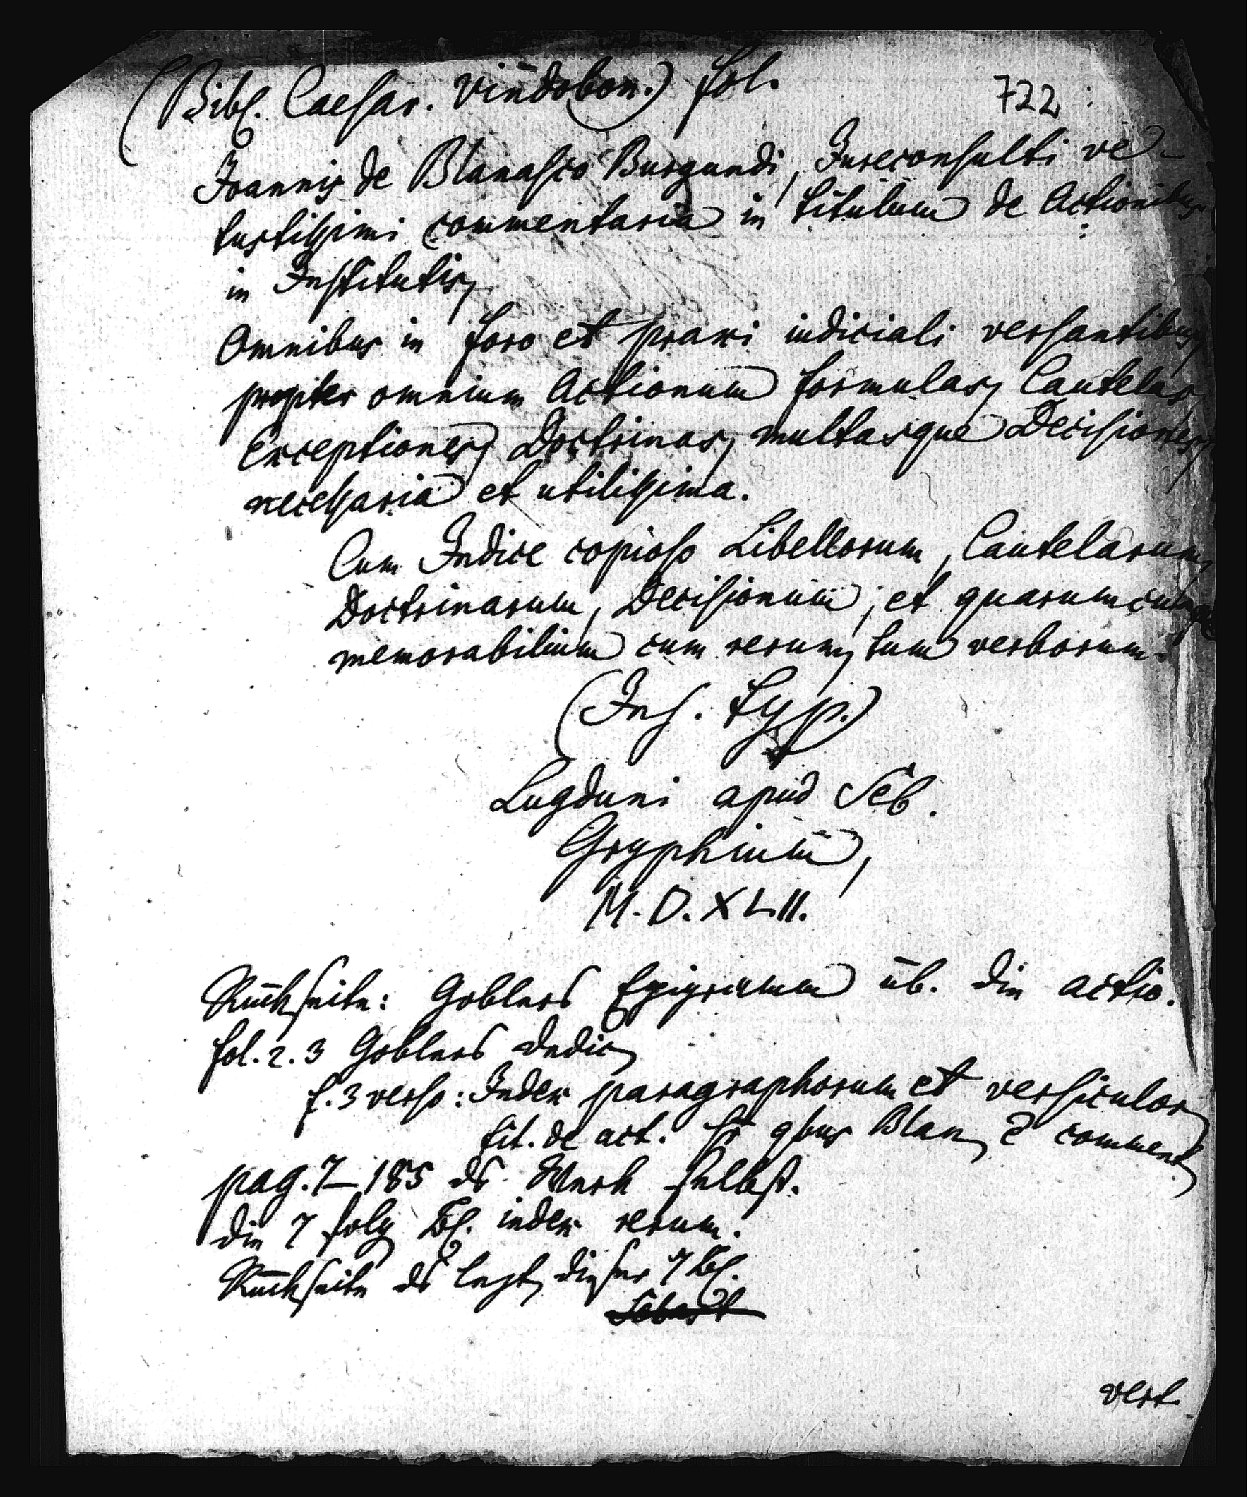 (Bibl. Caesar. Vindobon.) fol.
722
Joannis de Blanasco Burgundi, Jureconsulti ve-
tustissimi commentaria in titulum de Actionibus
in Institutis,
Omnibus in foro et praxi iudiciali versantibus,
propter omnium Actionum formulas, Cautelas,
Exceptiones, Doctrinas, multasque Decisiones,
necessaria et utilissima.
Cum Indice copioso Libellorum, Cautelarum,
Doctrinarum, Decisionum, et quarumcunque
memorabilium cum rerum, tum verborum.
(Ins. typ.)
Lugduni apud Seb.
Gryphium,
M.D.XLII.
Rückseite: Goblers Epigramm üb. die actio.
fol. 2. 3 Goblers Dedic
f. 3 verso: Index paragraphorum et versiculor
tit. de act. qbus Blan comment
pag. 7–185 ds Werk selbst.
die 7 folg Bl. index rerum.
Rückseite ds letzt dieser 7 Bl.
Sebast
vert.